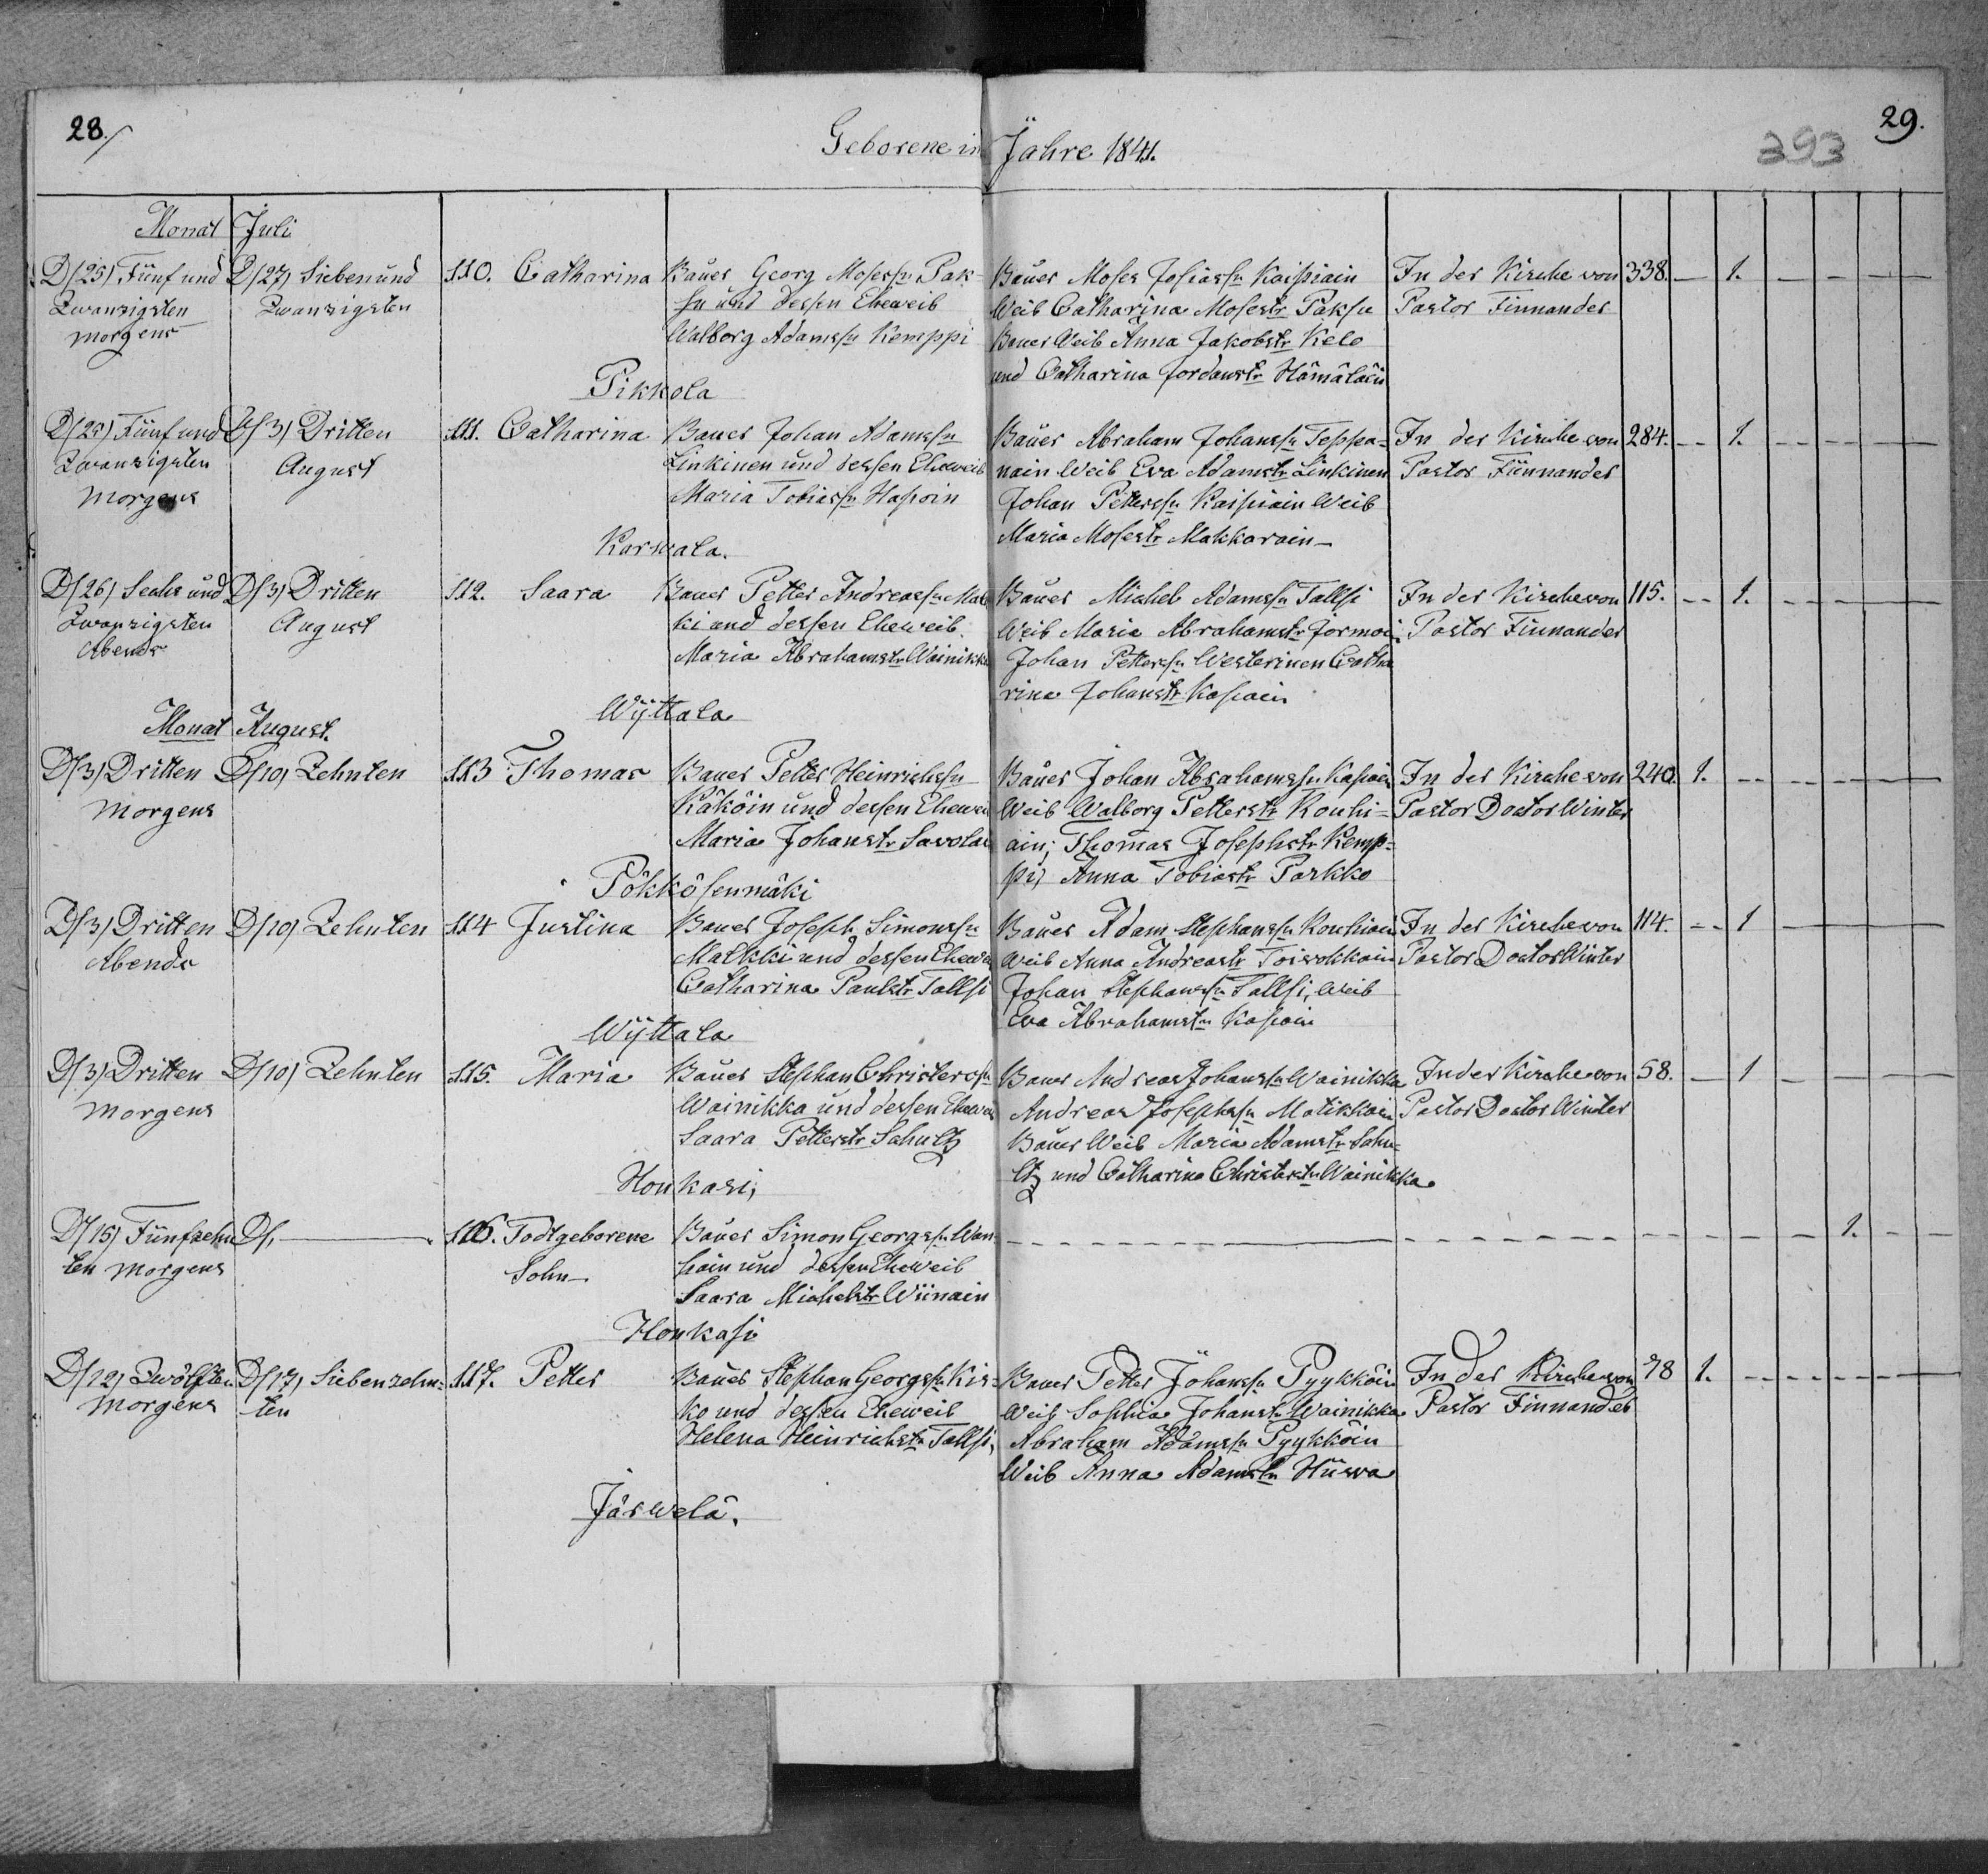 28.
29.
393
Geborene im Jahre 1841.
Monat Juli
D/25) Fünf und
Zwanzigsten
morgens
D/27) Sieben und
Zwanzigsten
110. Catharina
Bauer Georg Mosessn Pak-
su und dessen Eheweib
Walborg Adamssn Kemppi
Pikkola
Bauer Moses Josiassn Kaipiain
Weib Catharina Mosestr Paksu
Bauer Weib Anna Jakobstr Kelo
und Catharina Jordanstr Hämäläin
In der Kirche von
Pastor Finnander
338. — 1. — — — —
D/25) Fünf und
Zwanzigsten
Morgens
D/3) Dritten
August
111. Catharina
Bauer Johan Adamssn
Linkinen und dessen Eheweib
Maria Tobiassn Hapoin
Karwala.
Bauer Abraham Johanssn Teppa-
nain Weib Eva Adamstr Linkinen
Johan Petterssn Kaipiain Weib
Maria Mosestr Makkarain
In der Kirche von
Pastor Finnander
284. — 1. — — — —
D/26) Sechs und
Zwanzigsten
Abends
D/3) Dritten
August
112. Saara
Bauer Petter Andreassn Mat
ki und dessen Eheweib
Maria Abrahamstr Wainikka
Wÿttala
Bauer Michel Adamssn Tallsi
Weib Maria Abrahamstr Jormoi
Johan Petterssn Westerinen Catha
rina Johanstr Kapain
In der Kirche von
Pastor Finnander
115. — 1. — — — —
Monat August.
D/3) Dritten
Morgens
D/10) Zehnten
113 Thomas
Bauer Petter Heinrichssn
Käköin und dessen Ehewei
Maria Johanstr Savolai
Pökkösenmäki
Bauer Johan Abrahamssn Kapain
Weib Walborg Petterstr Kouhi-
ain; Thomas Josephstr Kemp-
pi, Anna Tobiastr Parkko
In der Kirche von
Pastor Doctor Winter
240. 1. — — — — —
D/3) Dritten
Abends
D/10) Zehnten
114 Justina
Bauer Joseph Simonssn
Matkki und dessen Ehewe
Catharina Paulstr Tallsi
Wÿttala
Bauer Adam Stephanssn Kouhiain
Weib Anna Andreastr Toiwokkain
Johan Stephanssn Tallsi, Weib
Eva Abrahamstr Kapain
In der Kirche von
Pastor Doctor Winter
114. — 1 — — — —
D/3) Dritten
Morgens
D/10) Zehnten
115. Maria
Bauer Stephan Christerssn
Wainikka und dessen Ehewei
Saara Petterstr Schultz
Honkasi,
Bauer Andreas Johanssn Wainikka
Andreas Josephssn Matikkain
Bauer Weib Maria Adamstr Schu-
ltz und Catharina Christerstr Wainikka
In der Kirche von
Pastor Doctor Winter
58. — 1 — — — —
D/15) Fünfzehn
ten morgens
D/, —
116. Todtgeborene
Sohn
Bauer Simon Georgssn Wan-
hain und dessen Eheweib
Saara Michelstr Wiinain
Honkasi
— — — 1. — —
D/12) Zwölften
Morgens
D/17) Siebenzehn-
ten
117. Petter
Bauer Stephan Georgssn Kir-
ko und dessen Eheweib
Helena Heinrichstr Tallsi,
Järwelä.
Bauer Petter Johanssn Pyykköin
Weib Sophia Johanstr Wainikka
Abraham Adamssn Pyykköin
Weib Anna Adamstr Hüwa
In der Kirche von
Pastor Finnander
78 1. — — — — —